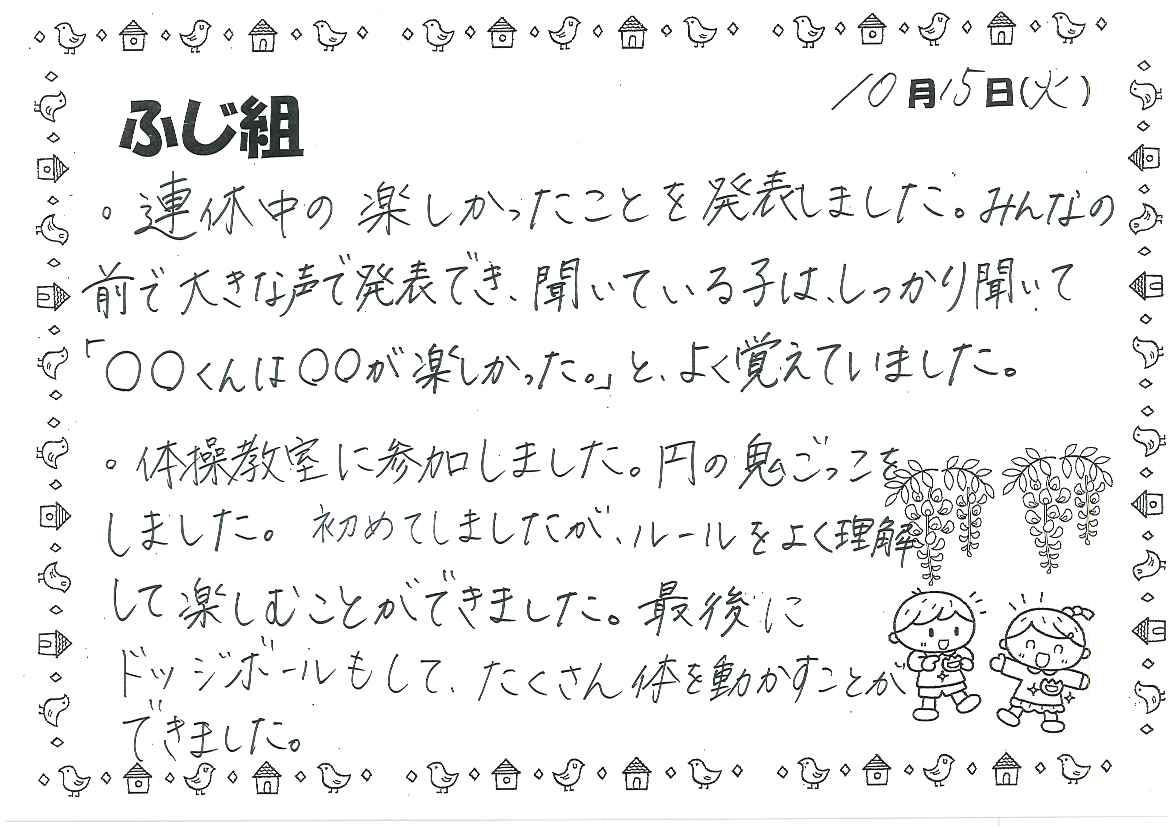 10月15日(火)
ふじ組
。連休中の楽しかったことを発表しました。みんなの
前で大きな声で発表でき、聞いている子は、しっかり聞いて
「〇〇くんは〇〇が楽しかった。」と、よく覚えていました。
。体操教室に参加しました。円の鬼ごっこを
しました。初めてしましたが、ルールをよく理解
して楽しむことができました。最後に
ドッジボールもして、たくさん体を動かすことが
できました。